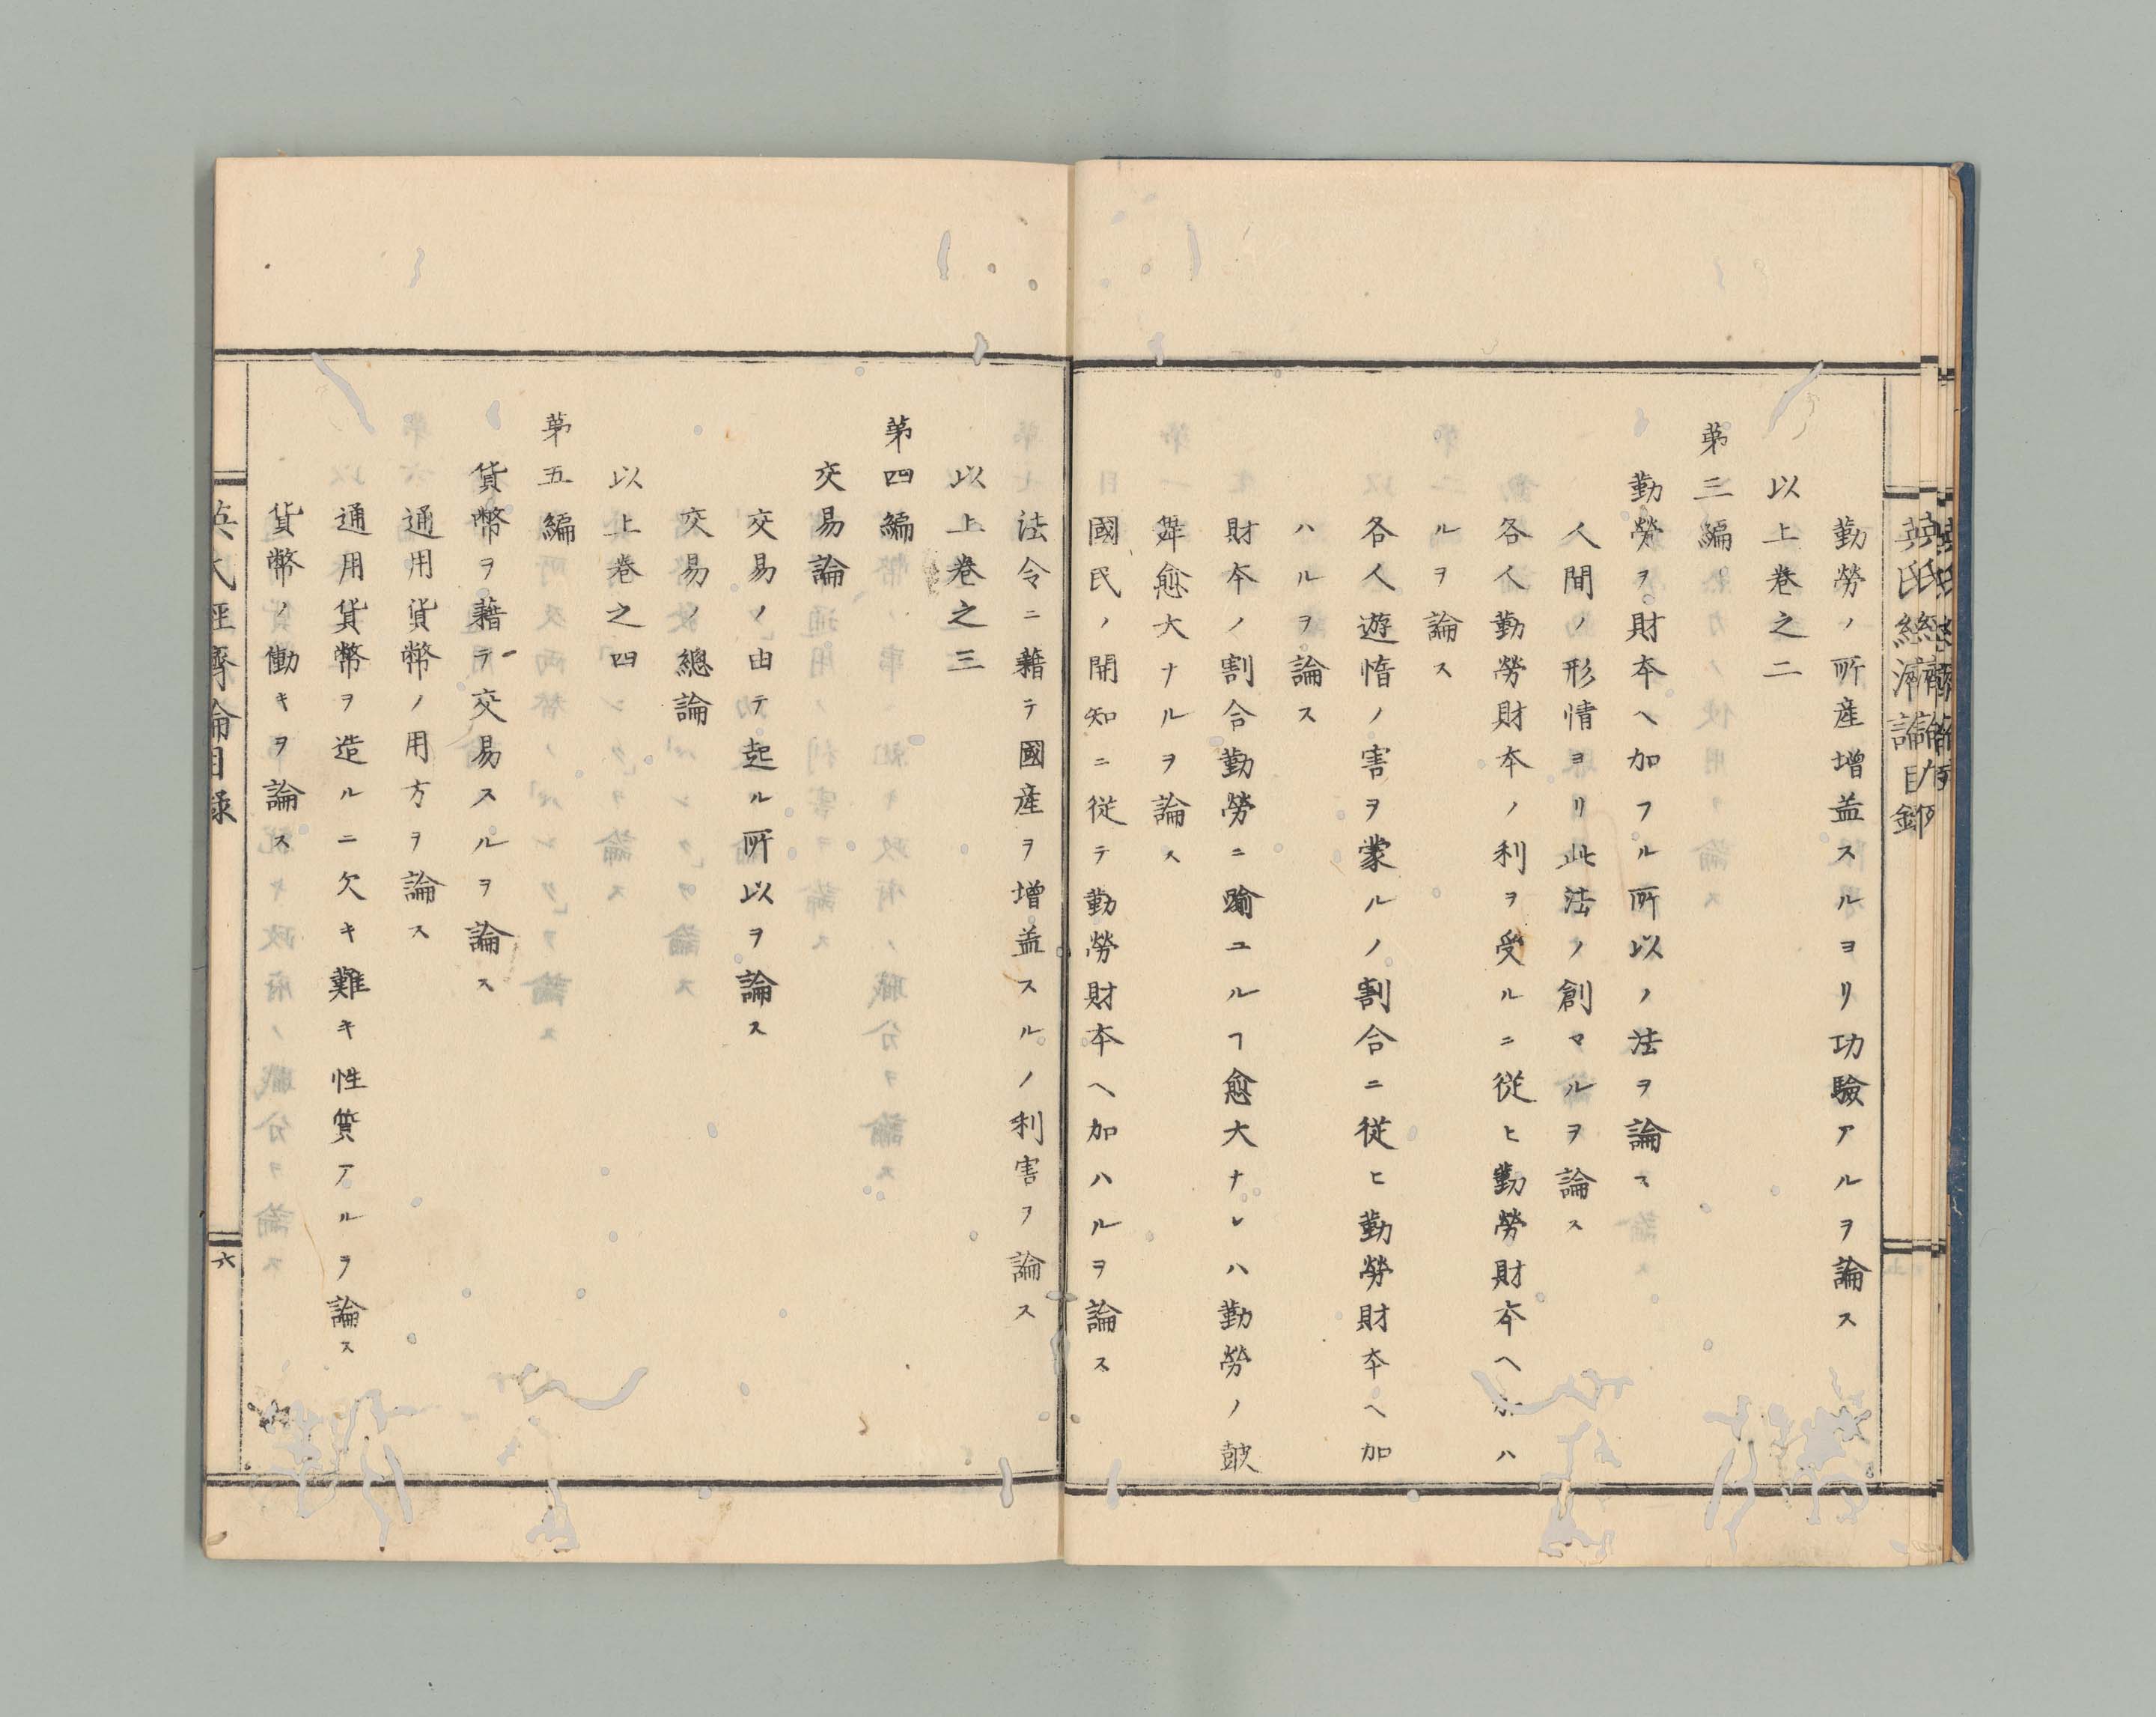 勤勞ノ所産增益スルヨリ功驗アルヲ論ス
以上巻之二
第三編
勤勞ヲ財本ヘ加フル所以ノ法ヲ論ス
人間ノ形情ヨリ此法ノ創マルヲ論ス
各人勤勞財本ノ利ヲ受ルニ從ヒ勤勞財本ヘ加ハ
ルヲ論ス
各人遊惰ノ害ヲ蒙ルノ割合ニ從ヒ勤勞財本ヘ加
ハルヲ論ス
財本ノ割合勤勞ニ踰ユルヿ愈大ナレハ勤勞ノ鼓
舞愈大ナルヲ論ス
國民ノ開知ニ從テ勤勞財本ヘ加ハルヲ論ス
法令ニ藉テ國産ヲ增益スルノ利害ヲ論ス
以上巻之三
第四編
交易論
交易ノ由テ起ル所以ヲ論ス
交易ノ總論
以上巻之四
第五編
貨幣ヲ藉テ交易スルヲ論ス
通用貨幣ノ用方ヲ論ス
通用貨幣ヲ造ルニ欠キ難キ性質アルヲ論ス
貨幣ノ働キヲ論ス
英氏經濟論目録
六